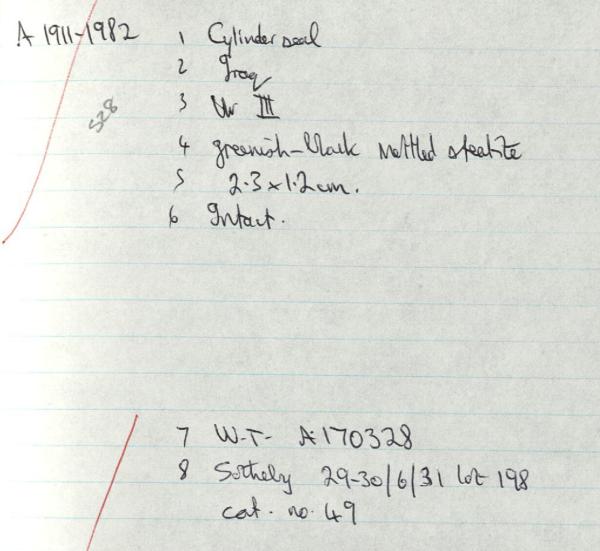 A 1911-1982 1 Cylinder seal
2 Iraq
3 Ur III
528
4 greenish-black mottled steatite
5 2.3 x 1.2 cm.
6 Intact.
7 W.T- A170328
8 Sotheby 29-30/6/31 lot 198
cat. no. 49